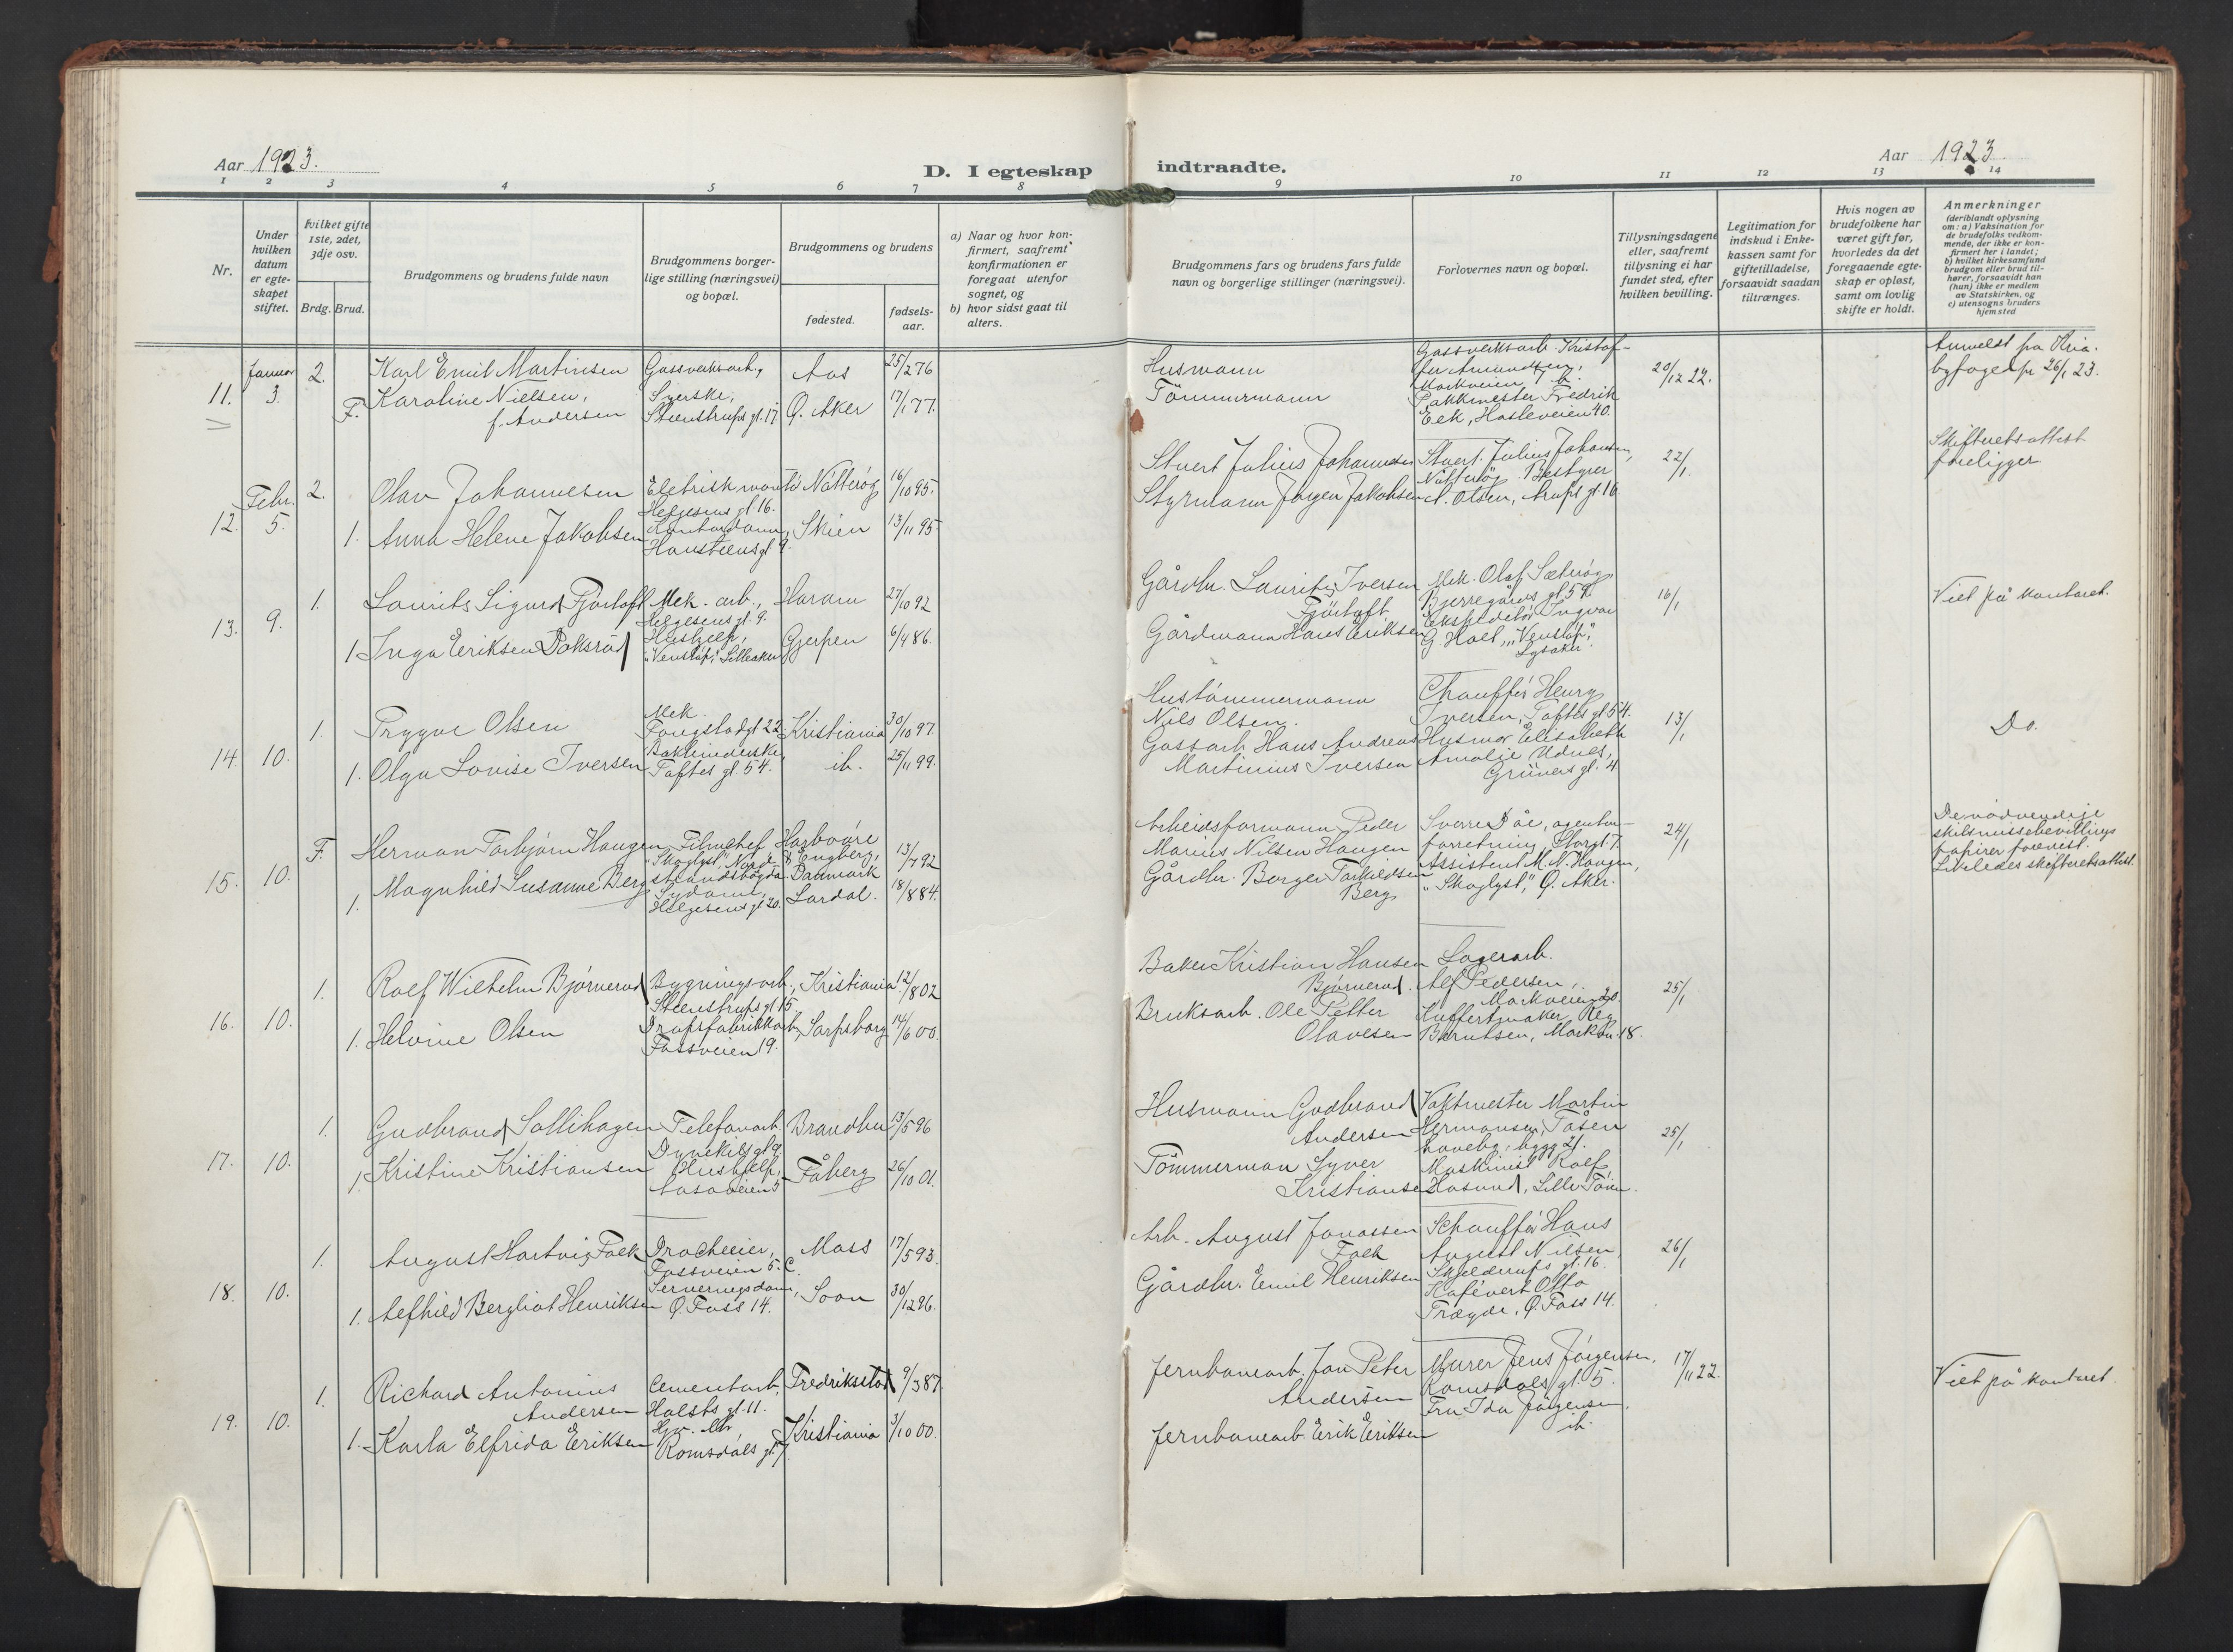 Aar 1923.
D. I egteskap indtraadte.
Aar 1923.
1 2 3 4 5 6 7 8 9 10 11 12 13 14
Nr.
Under hvilken datum er egteskapet stiftet.
Hvilket gifte 1ste, 2det, 3dje osv.
Brdg. Brud.
Brudgommens og brudens fulde navn
Brudgommens borgerlige stilling (næringsvei) og bopæl.
Brudgommens og brudens
fødested.
fødsels-aar.
a) Naar og hvor konfirmert, saafremt konfirmationen er foregaat utenfor sognet, og
b) hvor sidst gaat til alters.
Brudgommens fars og brudens fars fulde navn og borgerlige stillinger (næringsvei).
Forlovernes navn og bopæl.
Tillysningsdagene eller, saafremt tillysning ei har fundet sted, efter hvilken bevilling.
Legitimation for indskud i Enkekassen samt for giftetilladelse, forsaavidt saadan tiltrænges.
Hvis nogen av brudefolkene har været gift før, hvorledes da det foregaaende egteskap er opløst, samt om lovlig skifte er holdt.
Anmerkninger
(deriblandt oplysning om: a) Vaksination for de brudefolks vedkommende, der ikke er konfirmert her i landet; b) hvilket kirkesamfund brudgom eller brud tilhører, forsaavidt han (hun) ikke er medlem av Statskirken, og c) utensogns bruders hjemsted
11. Januar 3. 2. Karl Emil Martinsen Gassverksarb., Aas 25/2 76
F. Karoline Nielsen, f. Andersen Syerske, Steenstrups gt. 17. Ø. Aker 17/1 77.
Husmann
Tömmermann
Gassverksarb. Kristoffer Amundsen, Markveien 7 b.
Pakkmester Fredrik Eek, Hasleveien 40.
20/12 22.
Anmeldt fra Kria. byfoged pr 26/1 23.
12. Febr. 5. 2. Olav Johannesen Eletrisk mont. Helgesens gt 16. Nötterög 16/10 95.
1. Anna Helene Jakobsen Kontordame, Hansteensgt. 9. Skien 13/11 95.
Stuert Julius Johannesen
Styrmann Jörgen Jakobsen
Stuert. Julius Johansen, Nötterög. Bestyrer A. Olsen, Arups gt. 16
22/1.
Skifteretsattest foreligger.
13. 9. 1. Laurits Sigurd Fjörtoft Mek. arb., Helgesens gt. 9. Haram 27/10 92
1 Inga Eriksen Doksröd Hushjelp, "Venstöp," Lilleaker Gjerpen 6/4 86.
Gårdbr. Laurits Iversen Fjörtoft
Gårdmann Hans Eriksen
Mek. Olaf Sæteröy Bjerregårds gt 59.
Ekspeditör Ingvar G. Hoel, "Venstöp," Lysaker.
16/1
Viet på kontoret.
14. 10. 1. Trygve Olsen Mek. Fougstadgt 22 Kristiania 30/10 97.
1. Olga Lovise Iversen Toftes gt. 54. ib. 25/11 99.
Hustömmermann Nils Olsen.
Gassarb. Hans Andreas Martinius Iversen
Chaufför Henry Iversen, Toftes gt. 54.
Husmor Elisabeth Amalie Udnes, Grüners gt. 4.
13/1
Do.
15. 10. F. Herman Torbjörn Haugen Filmchef "Skoglyst", Nordstrandshögda Harboöre & Engberg, Danmark 13/7 92
1. Magnhild Susanne Berg Sydame, Helgesens gt 20. Lardal. 18/8 84.
Arbeidsformann Peder Marius Nilsen Haugen
Gårdbr. Borger Torkildsen Berg
Sverre Dåe, agenturforretning, Storgt. 7.
Assistent M. N. Haugen, "Skoglyst," Ø. Aker.
24/1
De nödvendige skilsmissebevillings papirer forevist. Likeledes skifteretsattest.
16. 10. 1. Rolf Wilhelm Björnerud Bygningsarb., Steenstrups gt 15. Kristiania 12/8 02
1. Helvine Olsen Dropsfabrikkarb, Fossveien 19. Sarpsborg 14/6 00.
Baker Kristian Hansen Björnerud.
Bruksarb. Ole Petter Olavesen
Lagerarb. Alf Pedersen, Markveien 20.
Kuffertmaker Reg. Berntsen, Markv. 18.
25/1
17. 10. 1. Gudbrand Sollihagen Telefonarb. Dynekils gt 9. Brandbu 13/5 96
1. Kristine Kristiansen Hushjelp, Fåberg 26/10 01.
Husmann Gudbrand Andersen
Tömmerman Syver Kristiansen
Vaktmester Martin Hermansen, Tåsen haveby, bygg 21.
Maskinist Rolf Hasund, Lille Töien.
25/1
18. 10. 1. August Hartvig Falk Fossveien 5. C. Moss 17/5 93.
1. Alfhild Bergliot Henriksen Serveringsdame, Ø. Foss 14. Soon 30/12 96.
Arb. August Jonassen Falk
Gårdbr. Emil Henriksen
Schaufför Hans August Nilsen Skjelderups gt. 16.
Kafévert Otto Trægde, Ø. Foss 14.
26/1
19. 10. 1. Richard Antonius Andersen Cementarb., Holsts gt. 11. Fredrikstad 9/3 87.
1. Karla Elfrida Eriksen Romsdals gt. 7. Kristiania 3/10 00.
Jernbanearb. Jon Peter Andersen
Jernbanearb. Erik Eriksen
Murer Jens Jörgensen, Romsdals gt. 5.
Fru Ida Jörgensen, ib.
17/11 22.
Viet på kontoret.